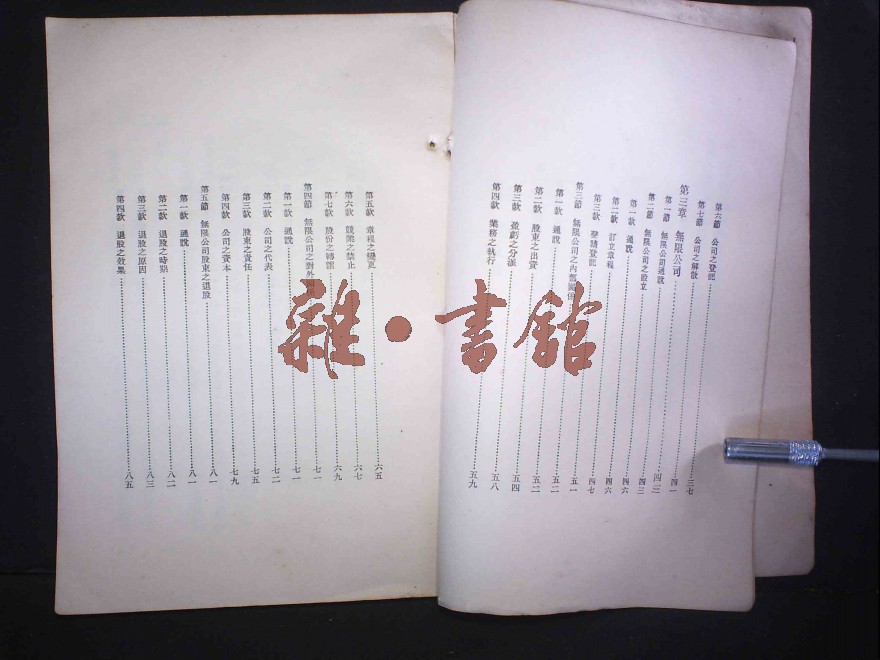 第六節 公司之登記……三七
第七節 公司之解散……四一
第三章 無限公司……四三
第一節 無限公司通說……四三
第二節 無限公司之設立……四六
第一款 通說……四六
第二款 訂立章程……四七
第三款 聲請登記……五一
第三節 無限公司之內部關係……五二
第一款 通說……五二
第二款 股東之出資……五四
第三款 盈虧之分派……五八
第四款 業務之執行……五九
第五款 章程之變更……六五
第六款 競業之禁止……六七
第七款 股份之轉讓……六九
第四節 無限公司之對外……七一
第一款 通說……七一
第二款 公司之代表……七二
第三款 股東之責任……七五
第四款 公司之資本……七九
第五節 無限公司股東之退股……八一
第一款 通說……八一
第二款 退股之時期……八二
第三款 退股之原因……八三
第四款 退股之效果……八五
雜·書館